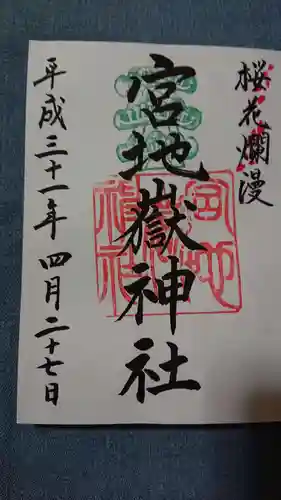 桜花爛漫
宮地嶽神社
平成三十一年四月二十七日
宮地
嶽神社